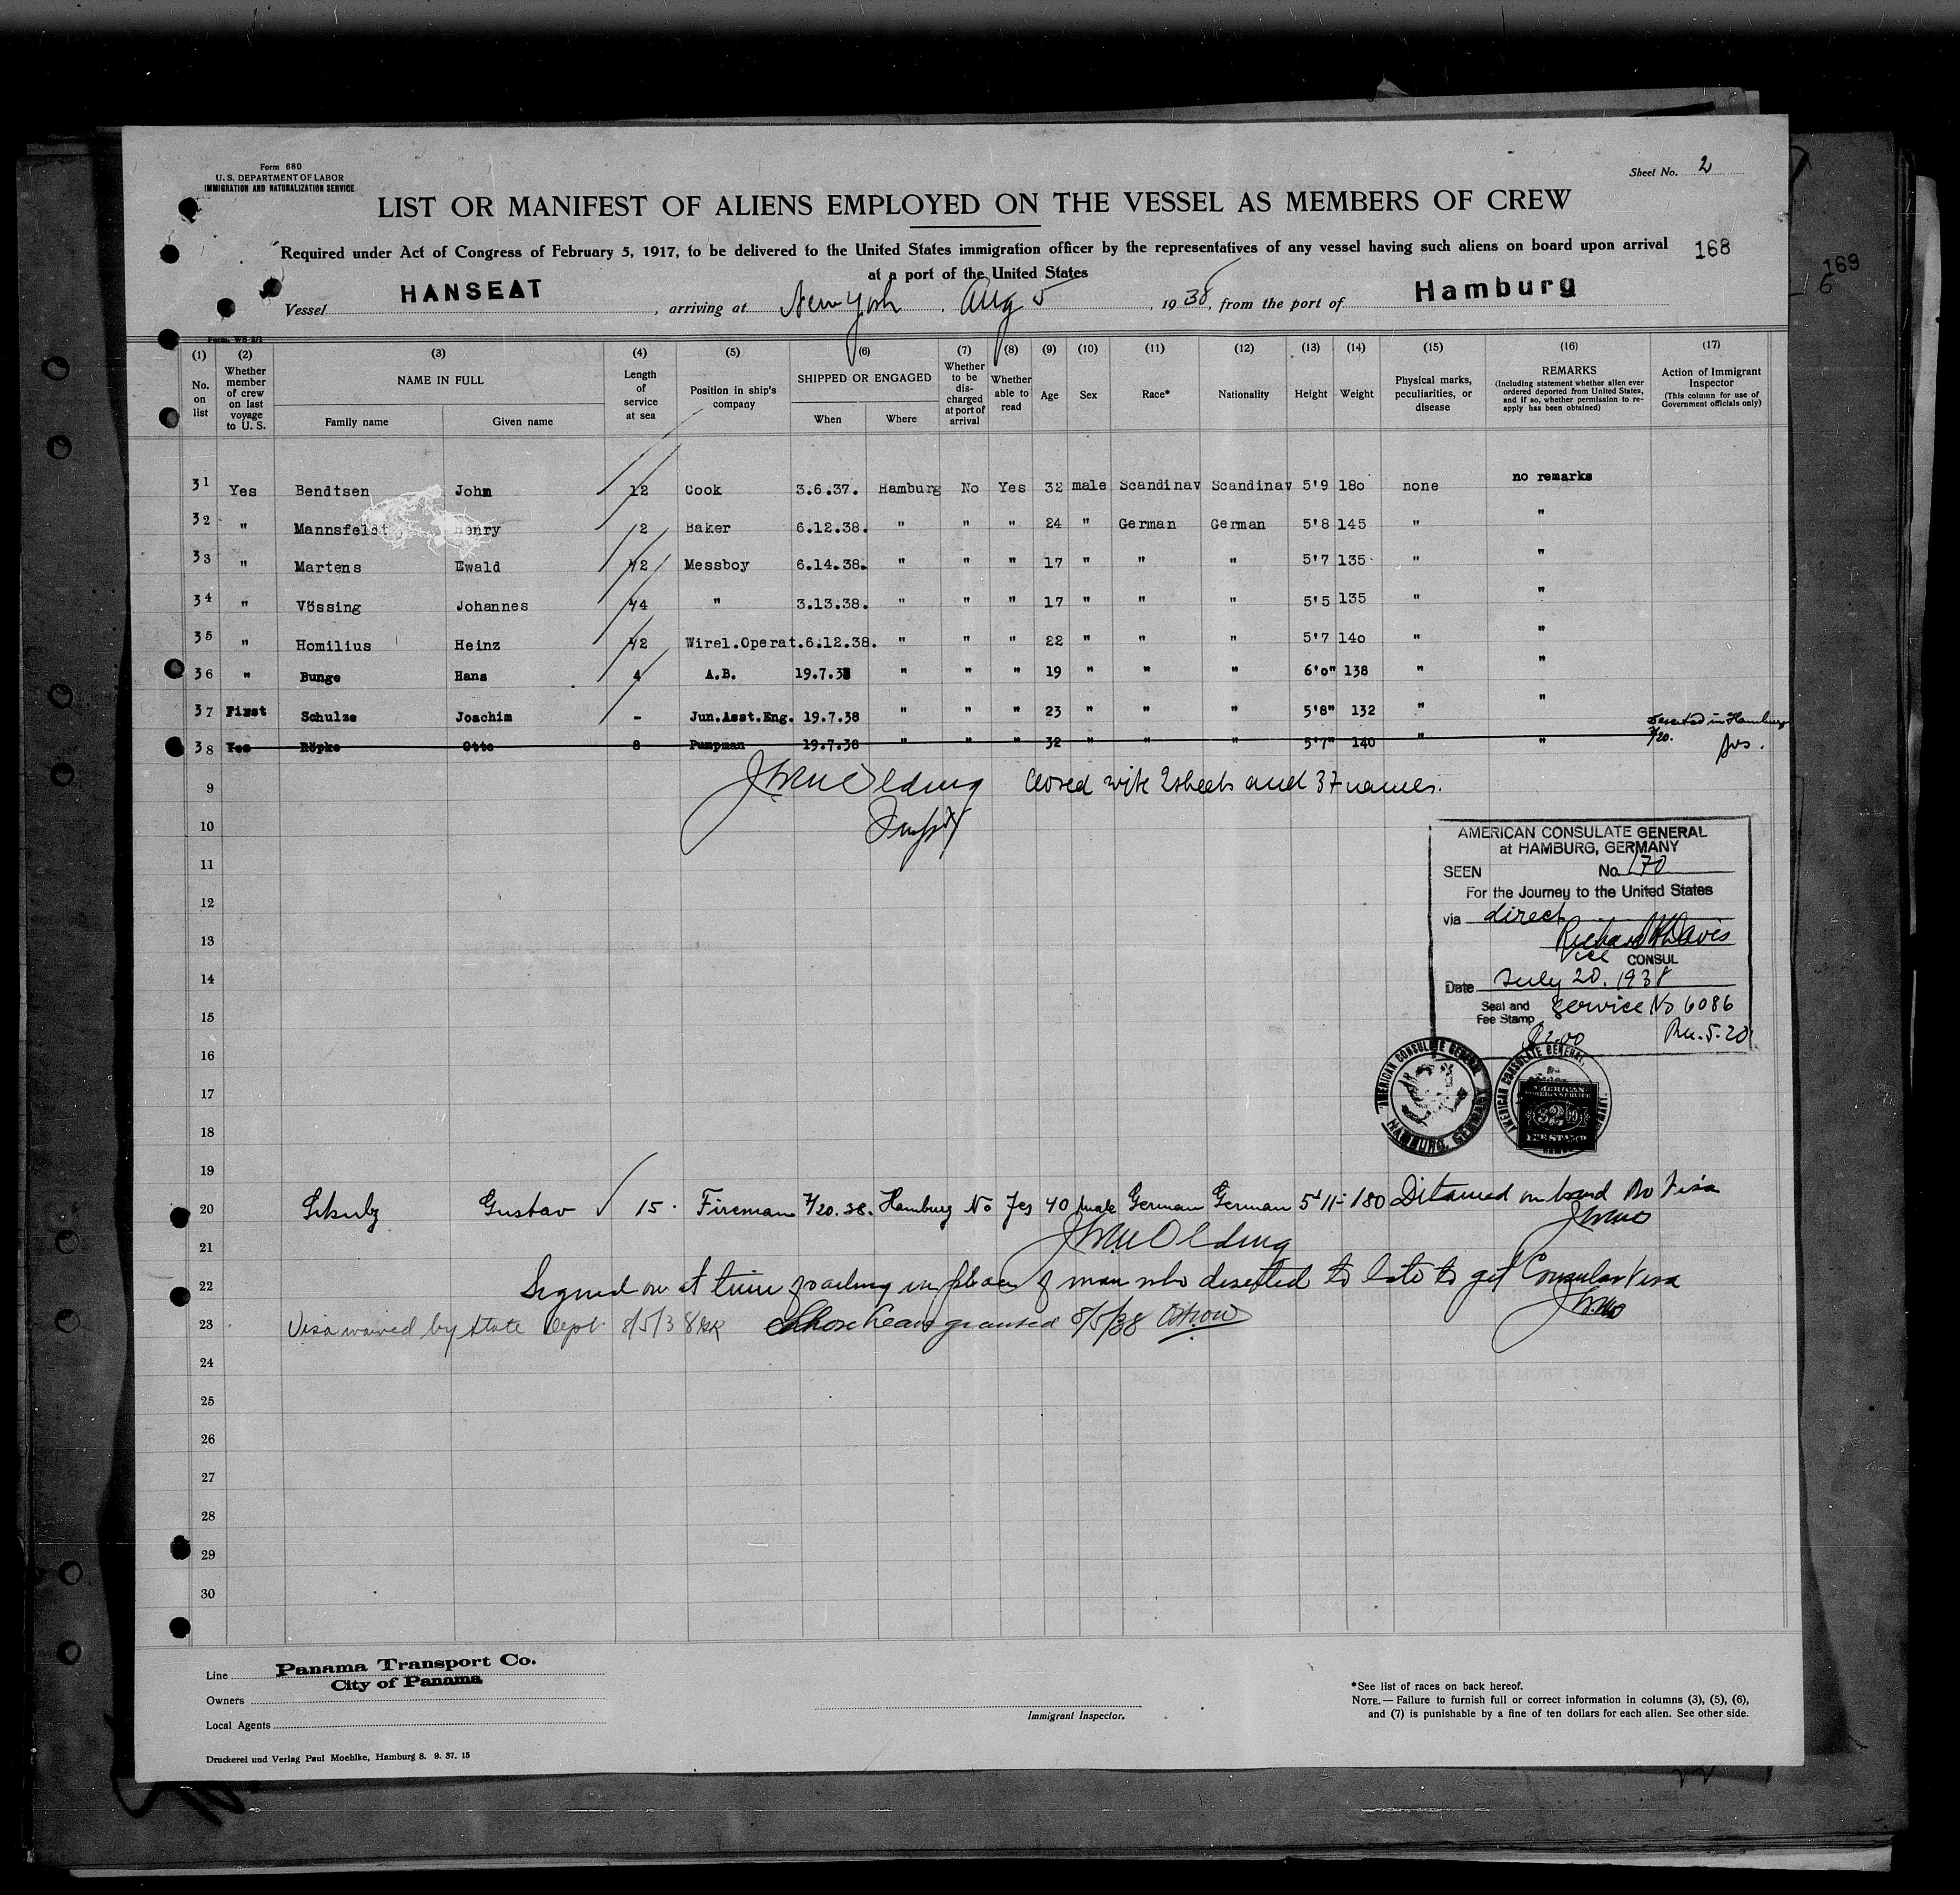 Form 680
U. S. DEPARTMENT OF LABOR
IMMIGRATION AND NATURALIZATION SERVICE
Sheet No. 2
LIST OR MANIFEST OF ALIENS EMPLOYED ON THE VESSEL AS MEMBERS OF CREW
Required under Act of Congress of February 5, 1917, to be delivered to the United States immigration officer by the representatives of any vessel having such aliens on board upon arrival
at a port of the United States
168
169
6
Vessel HANSEAT, arriving at New York, Aug 5, 1938, from the port of Hamburg
(1) (2) (3) (4) (5) (6) (7) (8) (9) (10) (11) (12) (13) (14) (15) (16) (17)
No. on list
Whether member of crew on last voyage to U. S.
NAME IN FULL
Family name
Given name
Length of service at sea
Position in ship's company
SHIPPED OR ENGAGED
When
Where
Whether to be discharged at port of arrival
Whether able to read
Age
Sex
Race*
Nationality
Height
Weight
Physical marks, peculiarities, or disease
REMARKS
(Including statement whether alien ever ordered deported from United States, and if so, whether permission to re-apply has been obtained)
Action of Immigrant Inspector
(This column for use of Government officials only)
31 Yes Bendtsen John 12 Cook 3.6.37. Hamburg No Yes 32 male Scandinav Scandinav 5'9 180 none no remarks
32 " Mannsfeldt Henry 2 Baker 6.12.38. " " " 24 " German German 5'8 145 " "
33 " Martens Ewald 1/2 Messboy 6.14.38. " " " 17 " " " 5'7 135 " "
34 " Vössing Johannes 1/4 " 3.13.38. " " " 17 " " " 5'5 135 " "
35 " Homilius Heinz 1/2 Wirel.Operat. 6.12.38. " " " 22 " " " 5'7 140 " "
36 " Bunge Hans 4 A.B. 19.7.38 " " " 19 " " " 6'0" 138 " "
37 First Schulze Joachim - Jun.Asst.Eng. 19.7.38 " " " 23 " " " 5'8" 132 " "
38 Yes Röpke Otto 8 Pumpman 19.7.38 " " " 32 " " " 5'7" 140 " " Deserted in Hamburg
7/20.
9 closed with 2 sheets and 37 names.
10
11
12
13
14
15
16
17
18
19
AMERICAN CONSULATE GENERAL
at HAMBURG, GERMANY
SEEN No. 170
For the Journey to the United States
via direct
Richard H Davis
Vice CONSUL
Date July 20. 1938
Seal and Fee Stamp Service No 6086
$2.00
AMERICAN CONSULATE GENERAL HAMBURG, GERMANY
AMERICAN CONSULATE GENERAL
AMERICAN FOREIGN SERVICE
FEE STAMP
20 Schulz Gustav 15. Fireman 7/20.38. Hamburg No Yes 40 male German German 5'11 180 Detained on board No Visa
21
22 Signed on at time of sailing in place of man who deserted to late to get Consular Visa
23 Visa waived by State Dept 8/5/38 Shore leave granted 8/5/38
24
25
26
27
28
29
30
Line Panama Transport Co.
City of Panama
Owners
Local Agents
Immigrant Inspector.
*See list of races on back hereof.
NOTE.—Failure to furnish full or correct information in columns (3), (5), (6),
and (7) is punishable by a fine of ten dollars for each alien. See other side.
Druckerei und Verlag Paul Moehlke, Hamburg 8. 9. 37. 15